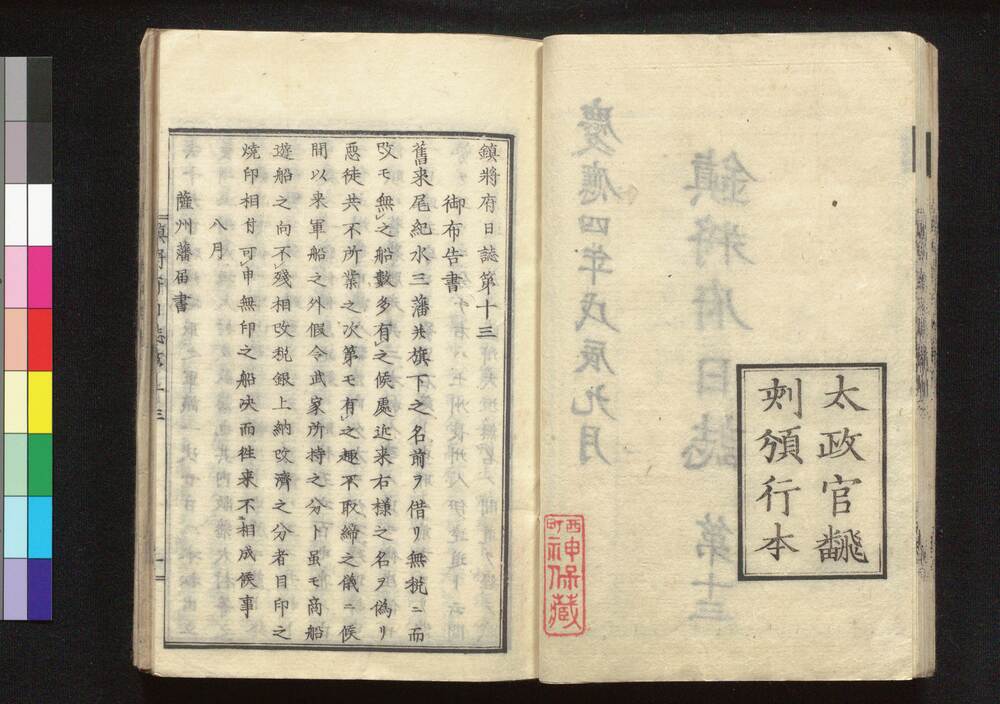 太政官飜
刻頒行本
鎮將府日誌 第十三
慶應四年戊辰九月
西町
神保蔵
鎮將府日誌第十三
御布告書
舊来尾紀水三藩共旗下之名前ヲ借リ無税ニ而
改モ無之船數多有之候處近来右様之名ヲ偽リ
惡徒共不所業之次第モ有之趣不取締之儀ニ候
間以来軍船之外假令武家所持之分ト雖モ商船
遊船之向不殘相改税銀上納改濟之分者目印之
焼印相付可申無印之船決而往来不相成候事
八月
薩州藩届書